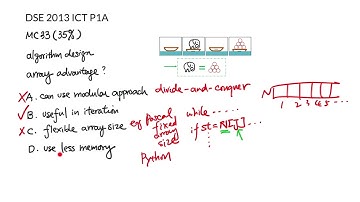 DSE 2013 ICT P1A
MC33 (35%)
algorithm design
array advantage?
A. can use modular approach divide-and-conquer
B. useful in iteration
C. flexible array size
D. use less memory
eg Pascal
fixed
array
size
Python
while ......
if st = N[j] ...
N
1 2 3 4 5 ...